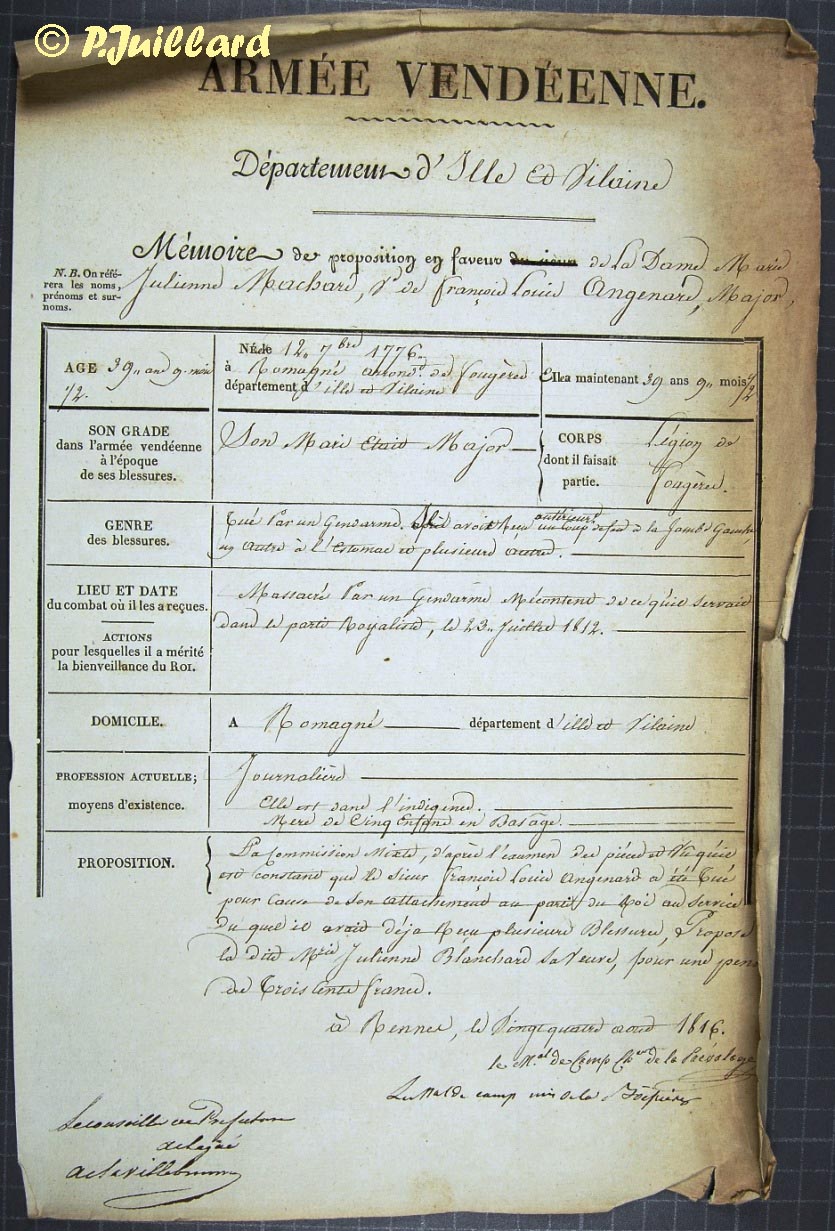 © P.Juillard
ARMÉE VENDÉENNE.
Département d'Ille et Vilaine
Mémoire de proposition en faveur du sieur de la Dame Marie
N. B. On référera les noms, prénoms et surnoms.
Julienne Machard, Vve de françois Louis Angenard, Major,
AGE 39 ans 9 mois 1/2.
Née le 12 7bre 1776
à Romagné arrond.t de fougères
département d'ille et Vilaine
Elle a maintenant 39 ans 9 mois 1/2
SON GRADE
dans l'armée vendéenne
à l'époque
de ses blessures.
Son Mari Etait Major
CORPS
dont il faisait
partie.
Légion de
fougères.
GENRE
des blessures.
Tué Par un Gendarme. Il avait Reçu antérieur.t un coup defeu a la Jambe Gauche,
un autre à l'Estomac et plusieurs autres.
LIEU ET DATE
du combat où il les a reçues.
ACTIONS
pour lesquelles il a mérité
la bienveillance du ROI.
Massacré Par un Gendarme Mécontent de ce qu'il servait
dans le parti Royaliste, le 23 Juillet 1812.
DOMICILE.
A Romagné département d'ille et Vilaine
PROFESSION ACTUELLE;
moyens d'existence.
Journalière
Elle est dans l'indigence.
Mère de Cinq Enfans en Bas âge.
PROPOSITION.
La Commission Mixte, d'après l'examen des pièces et Vu qu'il
est constant que le Sieur françois Louis Angenard a été Tué
pour Cause de son attachement au parti du Roi au service
du quel il avait déja Reçu plusieurs Blessures, Propose
la dite Mrie Julienne Blanchard sa Veuve, pour une pens
de Trois Cents francs.
à Rennes, le Vingt quatre aout 1816.
le M.al de Camp Ch.er de la Prévalaye
Le Mal de camp de la Boëssière
Le conseille de Préfecture
délégué
de la villebrune